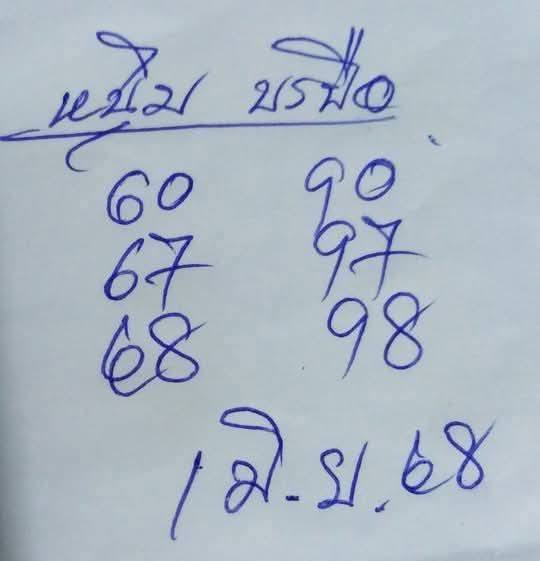 หนุ่ม บรบือ
60 90
67 97
68 98
1 มิ.ย. 68